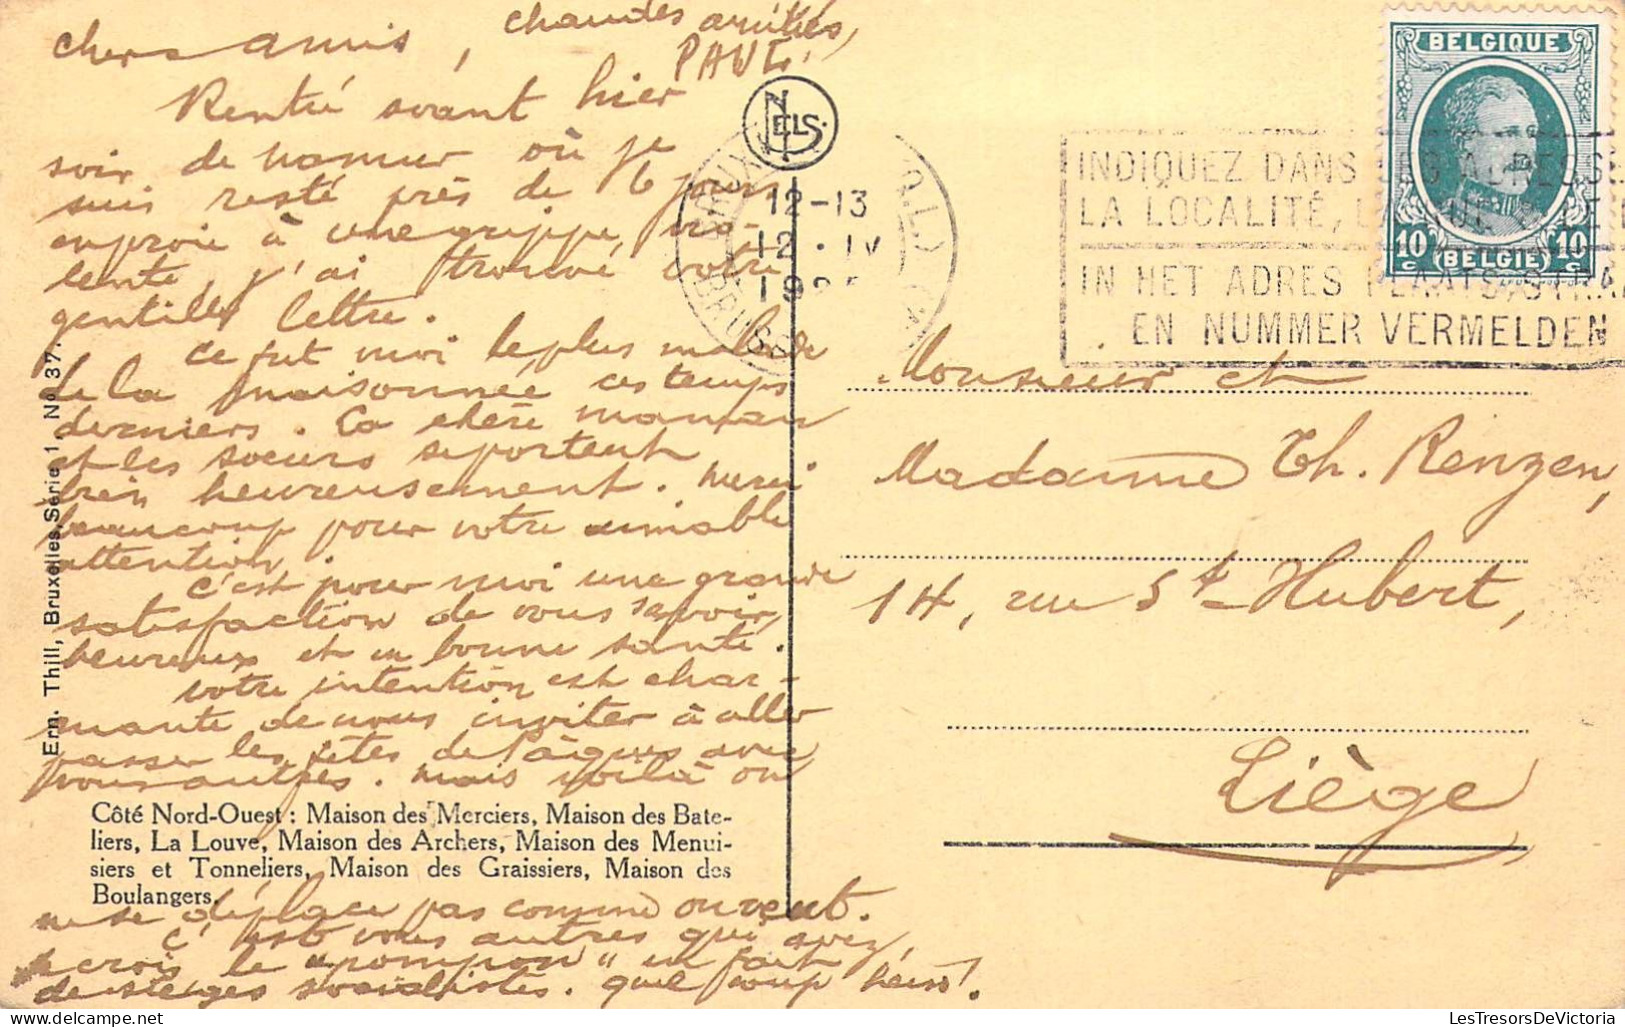 chers amis,
Rentré avant hier
soir de Namur où je
suis resté près de 6 jours
en proie à une grippe, vio-
lente, j'ai trouvé votre
gentille lettre.
Ce fut moi le plus malade
de la maisonnée ces temps
derniers. Ca chère maman
et les soeurs se portent
bien heureusement. Merci
beaucoup pour votre aimable
attention.
C'est pour moi une grande
satisfaction de vous savoir,
heureux et en bonne santé.
Votre intention est char-
mante de nous inviter à aller
passer les fêtes de Pâques avec
vous autres. Mais voilà on
ne se déplace pas comme on veut.
C'est vous autres qui avez,
je crois le "pompon" en fait
de sièges socialistes. Quel coup hein!
chaudes amitiés,
PAUL.
NELS.
BELGIQUE
10c 10c
(BELGIE)
12-13
12·IV
INDIQUEZ DANS LES ADRESSES
LA LOCALITÉ,
IN HET ADRES PLAATS STRAAT
EN NUMMER VERMELDEN
Monsieur et
Madame Th. Renzen,
14, rue St-Hubert,
Liège
Ern. Thill, Bruxelles, Série 1, No 37.
Côté Nord-Ouest : Maison des Merciers, Maison des Bate-
liers, La Louve, Maison des Archers, Maison des Menui-
siers et Tonneliers, Maison des Graissiers, Maison des
Boulangers.
LesTresorsDeVictoria
delcampe.net